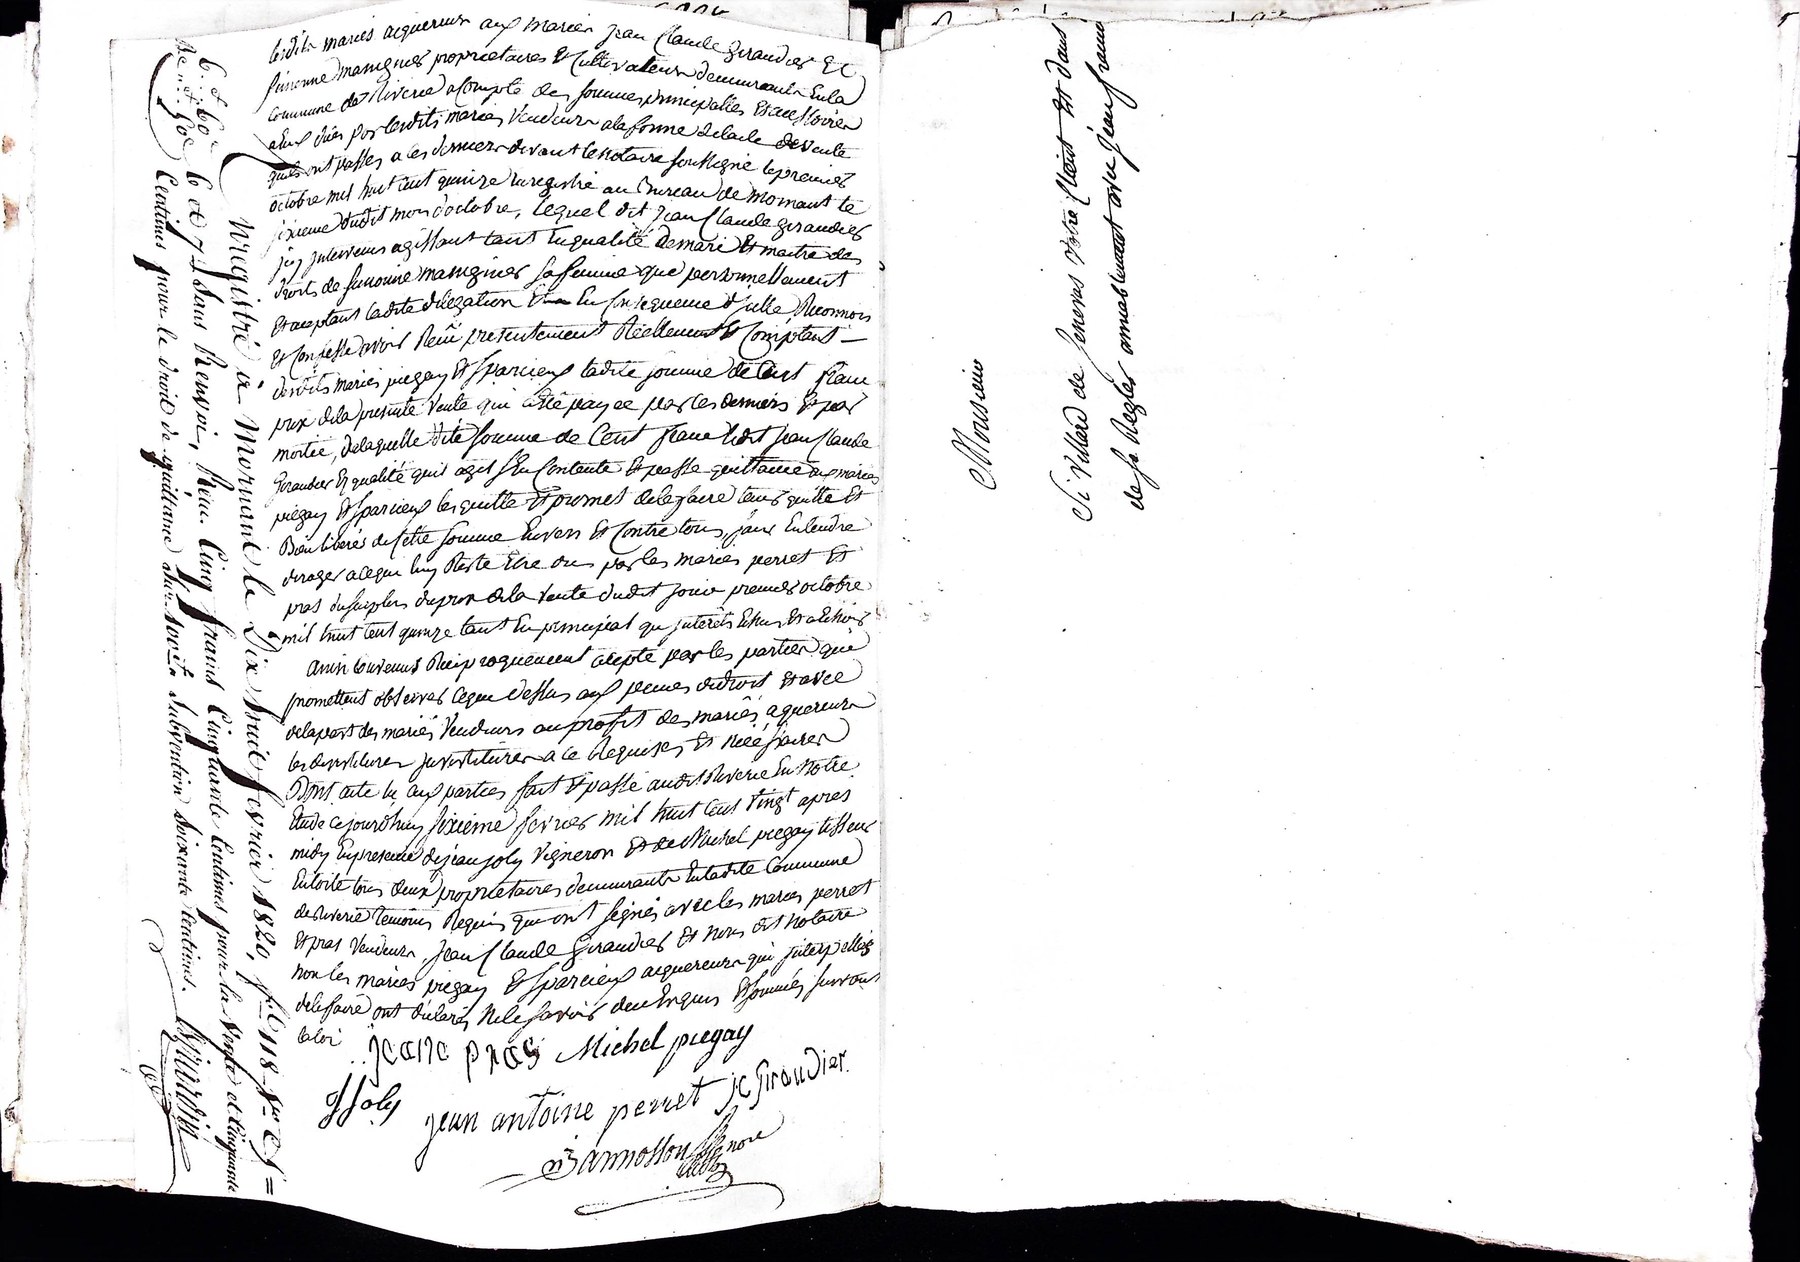 lesdits mariés aiquereurs aux mariés Jean Claude Giraudier Et
simonne manigniez proprietaires Et Cultivateurs demeurants Enla
Commune de Riverie acompte des sommes principalles Et accessoires
a Eux dües par lesdits mariés Vendeurs a la forme de lacte de Vente
quils ont passés a ces derniers devant le Notaire soussigné le premier
octobre mil huit Cent quinze Enregistré au Bureau de mornant le
sixieme dudit mois doctobre, lequel dit Jean Claude Giraudier
jcy jntervenu agissant tant En qualité de mari Et maitre des
droits de simonne manigniez sa femme que personnellement
Et aceptant ladite délégation Et En Consequence d'jcelle Reconnois
Et Confesse avoir Reçu presentement Réellement Et Comptant
desdits mariés piegay Et sparcieux ladite somme de Cent franc
prix de la presente Vente qui a été payée par les derniers Et par
moitié, de laquelle dite somme de Cent franc ledit Jean Claude
Giraudier En qualité quil agit s'En Contente Et passe quittance aux mariés
piegay Et sparcieux les quitte Et promet de les faire tenir quitte Et
Bien liberés de Cette somme Envers Et Contre tous, sans Entendre
deroger a Cequi luy Reste Etre du par les mariés perret Et
pras du surplus du prix de la Vente dudit jour premier octobre
mil huit Cent quinze tant En principal qu'jnterêts Echus Et a Echoir
Ainsi Convenus Reciproquement acepté par les parties qui
promettent observer Cequi dessus aux peines de droit Et avec
de la part des mariés Vendeurs au profit des mariés aquereurs
les devestitures jnvestitures a ce Requises Et Nécéssaires
Dont acte lu aux parties fait Et passé audit Riverie En Notre
Etude Cejourdhuy sixieme fevrier mil huit Cent Vingt apres
midy En presence de jean joly Vigneron Et de Michel piegay tisseur
En toile tous deux proprietaires demeurants En ladite Commune
de Riverie temoins Requis qui ont signés avec les mariés perret
Et pras Vendeurs, Jean Claude Giraudier Et Nous dit Notaire
non les mariés piegay Et sparcieux aiquereurs qui jnterpellés
de le faire ont déclarés Ne le savoir de ce Enquis Et sommés suivant
la loi
jeane pras Michel piegay
J Joly
jean antoine perret JC Giraudier
Bannosson nore
Enregistré à Mornant le Dix huit fevrier 1820, fo. 118 Vo. C5 =
6. et 60. 6 et 7 Sans Renvoi, Reçu Cinq francs Cinquante Centimes pour la Vente et Cinquante
Centimes pour le droit de quittance
Subvention Soixante Centimes.
Monsieur
Si Villard de Senevas Votre Client Est dans
de se Regler amiablement avec jean franc